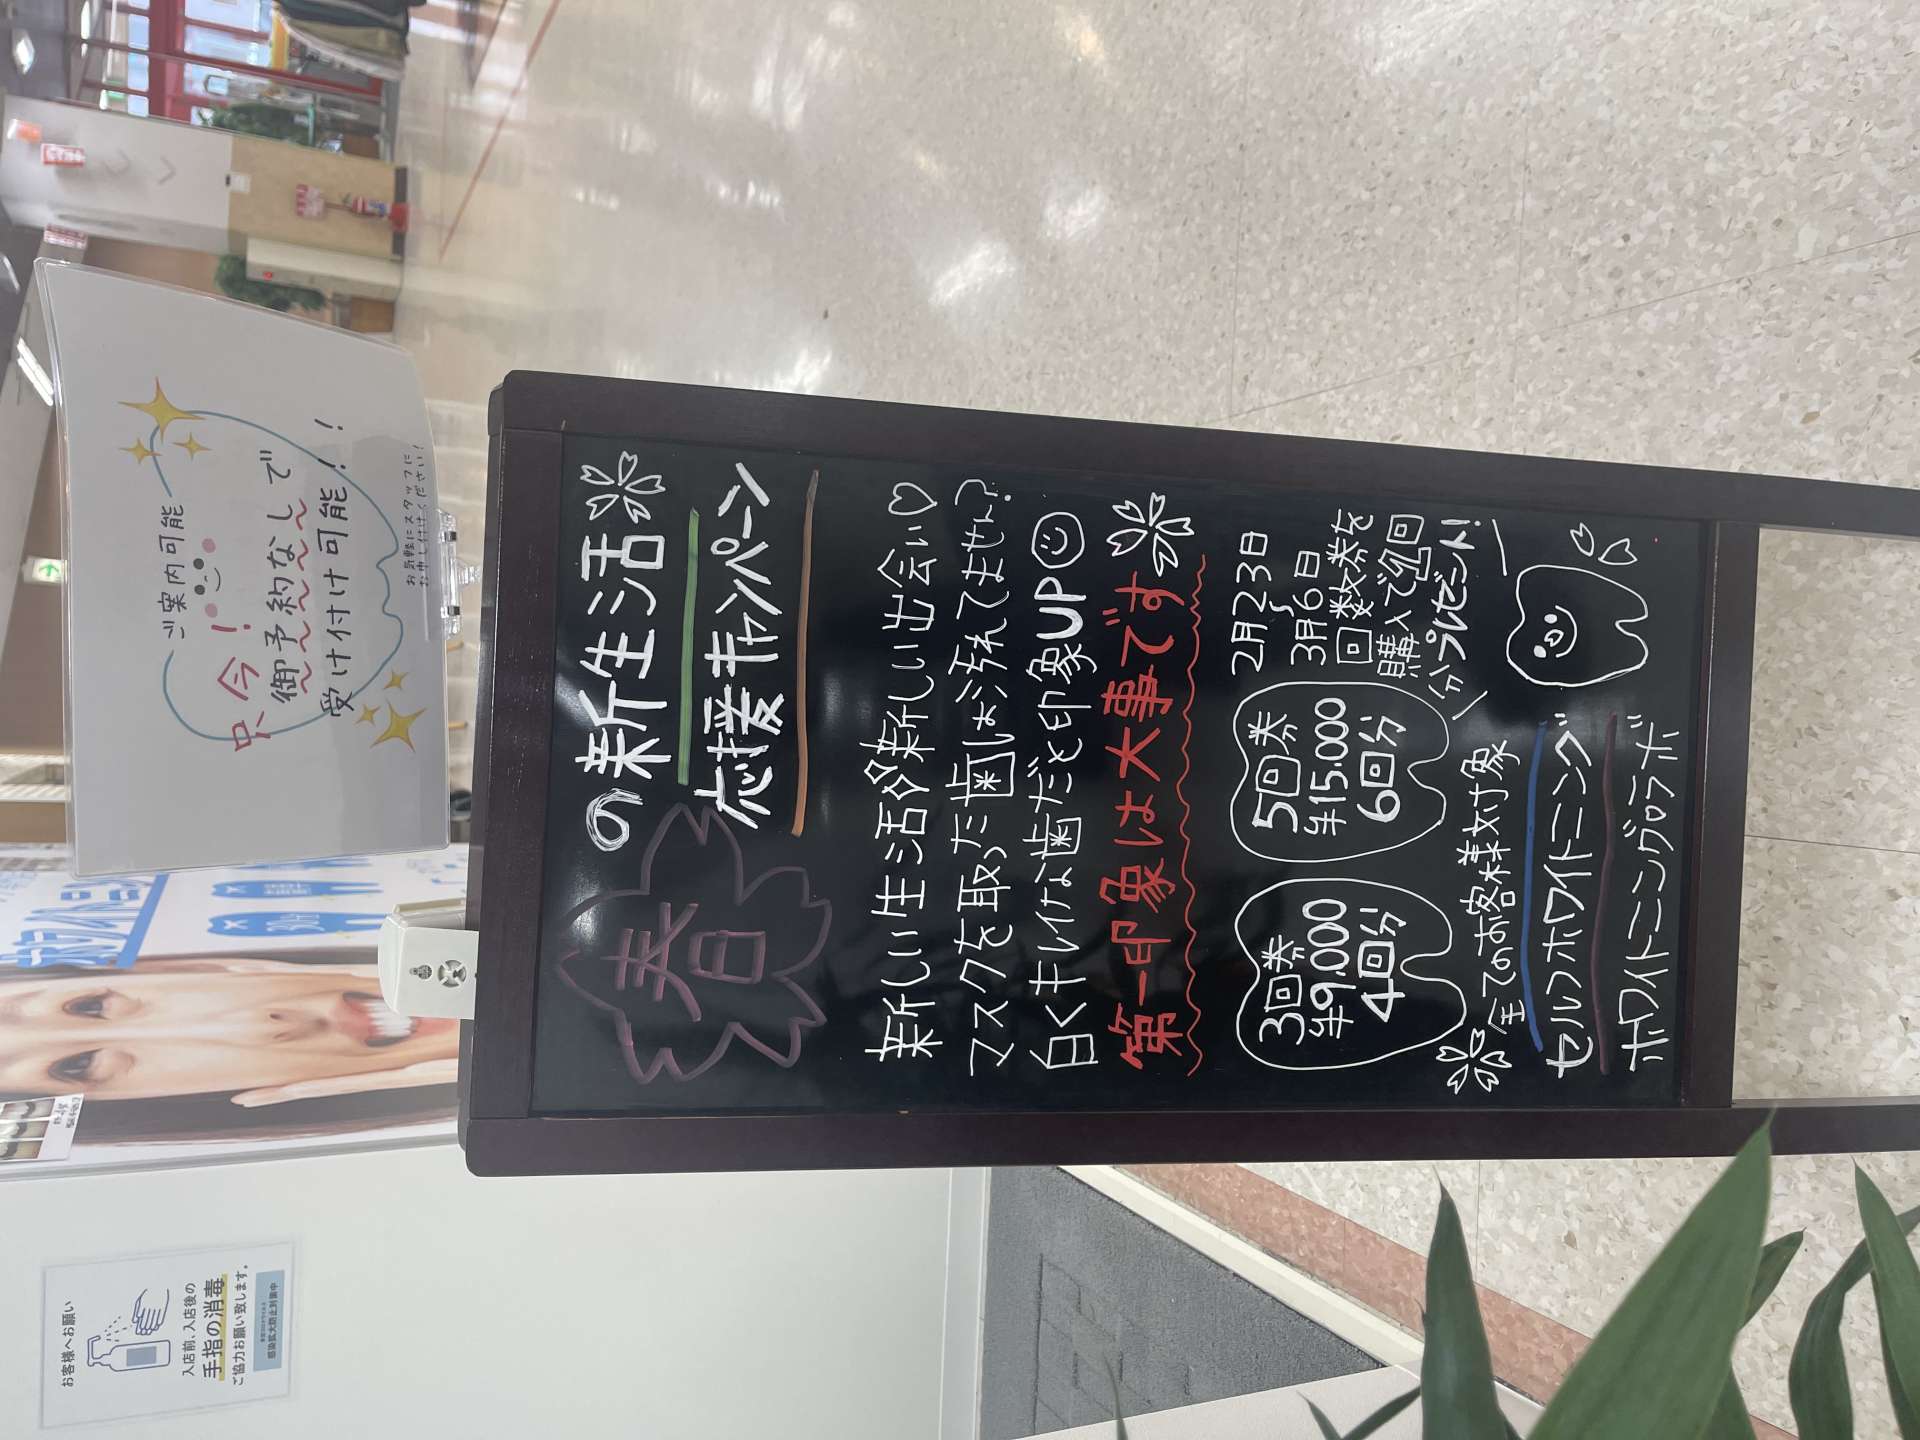 ご案内可能
只今!
御予約なしで
受け付け可能!!
お気軽にスタッフに
お申し付けください!
春の新生活
応援キャンペーン
新しい生活新しい出会い♡
マスクを取った歯は汚れてません?
白くキレイな歯だと印象UP
第一印象は大事です
3回券
¥9,000
4回分
5回券
¥15.000
6回分
2月23日
~
3月6日
回数券を
購入で1回
分プレゼント!
全てのお客様対象
セルフホワイトニング
ホワイトニングラボ
お客様へお願い
入店前、入店後の
手指の消毒
ご協力お願い致します。
感染拡大防止対策中